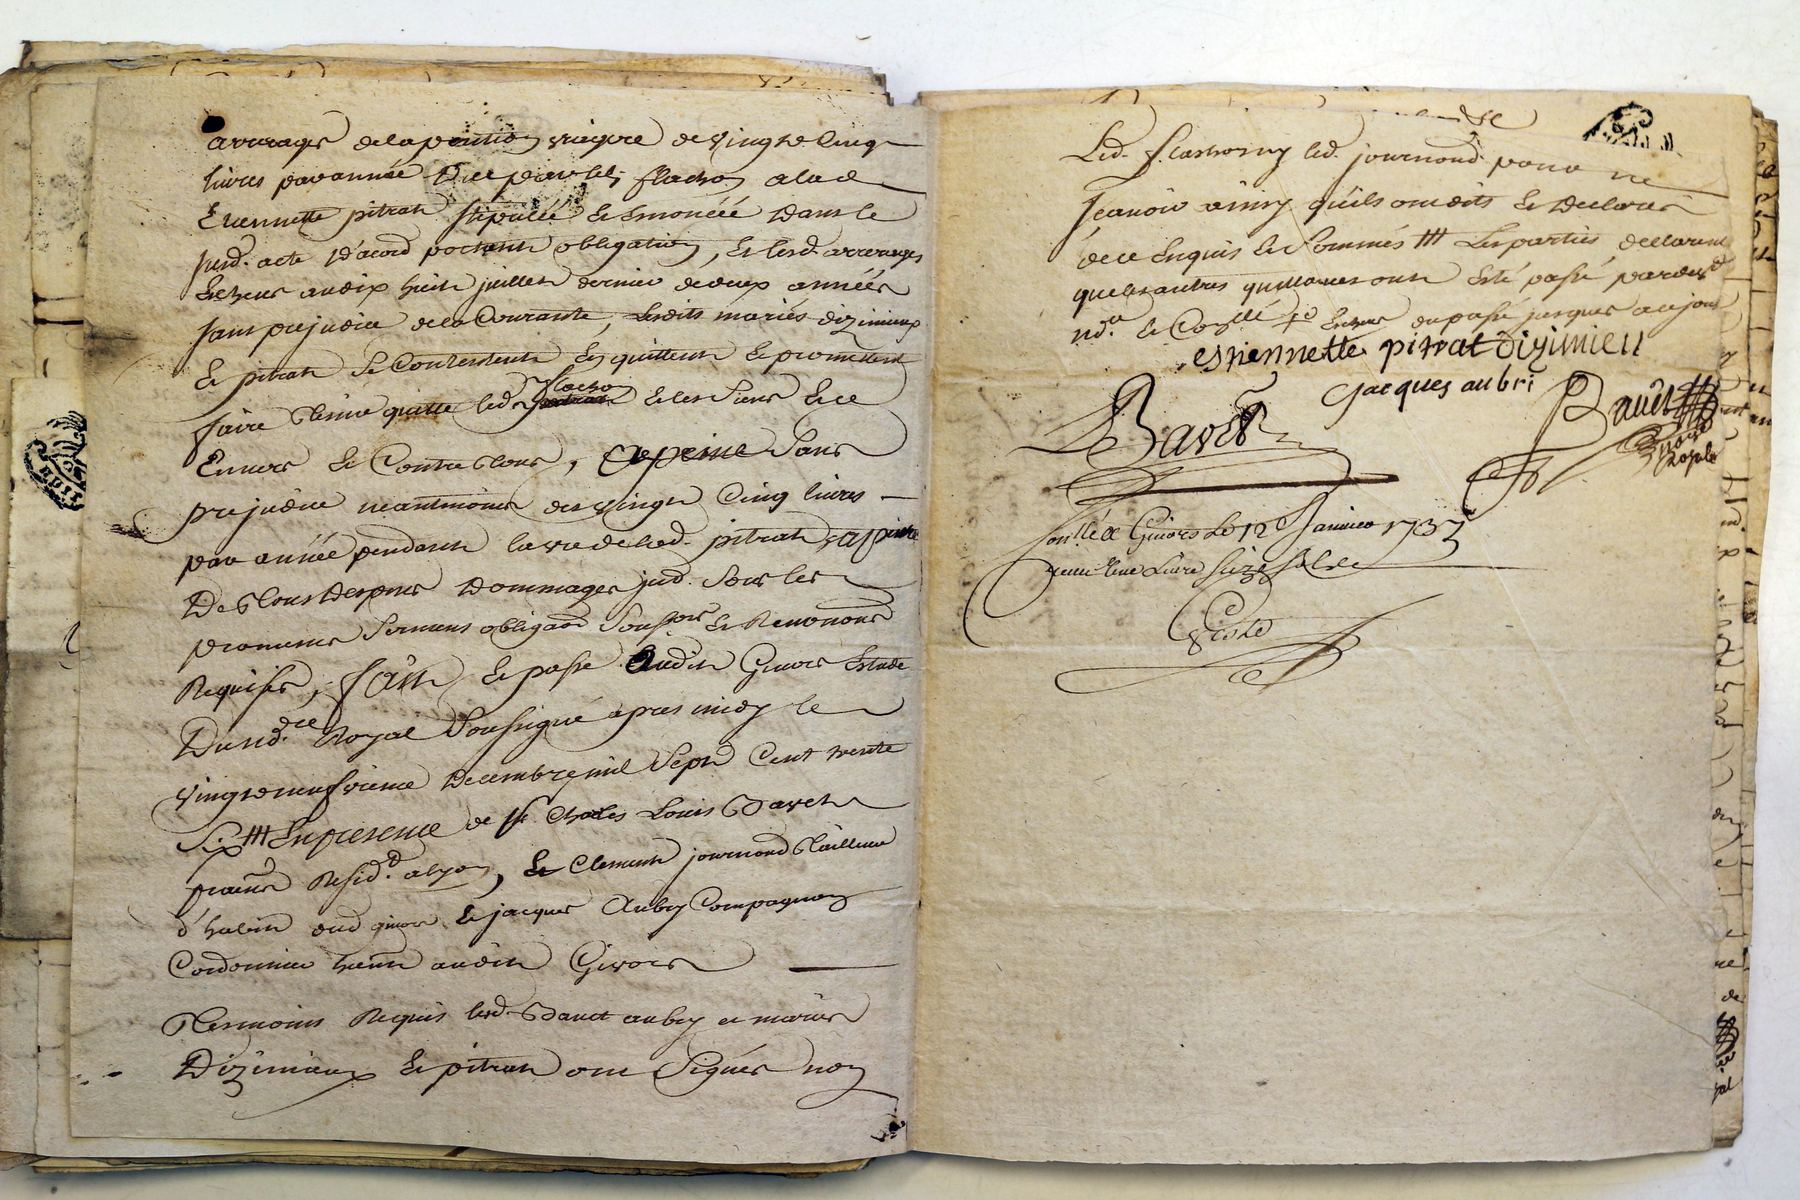 arrerages de la pention viagere de vingt et cinq
livres par année Due par led. flachon a lad.
Etiennette pitrat stipulée et Enoncée Dans le
susd. acte D'acord portant obligation, et lesd. arrerages
Escheus au dix huit juillet dernier de deux années
sans prejudice de la Courante, Lesdits mariés dizimieux
Et pitrat se Contentent En quittent Et promettent
faire Tenir quitte led. flachon Et les siens Et ce
Envers Et Contre tous, sans
prejudice neantmoins des vingt Cinq livres
par année pendant la vie de lad. pitrat, a peine
De tous Despens Dommages jud. sous les
promesses serments obligaons soub.ons Et Renonons
Requises, fait Et passé audit Givors Estude
Du nd.re Royal soussigné apres midy le
vingt et neufvieme Decembre mil sept Cent trente
six En presence de sr. Charles Louis Bavet
Resid.t a lyon, Et Clement journond Tailleur
d'habits aud. givors Et jacques Aubry Compagnon
Cordonnier audit Givors
Tesmoins Requis lesd. Bavet aubry et mariés
Dizimieux Et pitrat ont signés non
Led. flachon ny led. journond pour ne
sçavoir ainsy qu'ils ont dits Et Declarés
de ce Enquis Et sommés Les parties declarent
que les autres quittances ont Esté passé
du passé jusques a ce jour
estiennette pitrat Dizimieu
Jacques aubri
Bavet
Bavet
no.re Royal
Con.llé a Givors Le 12 Janvier 1737
receu une Livre seize sols